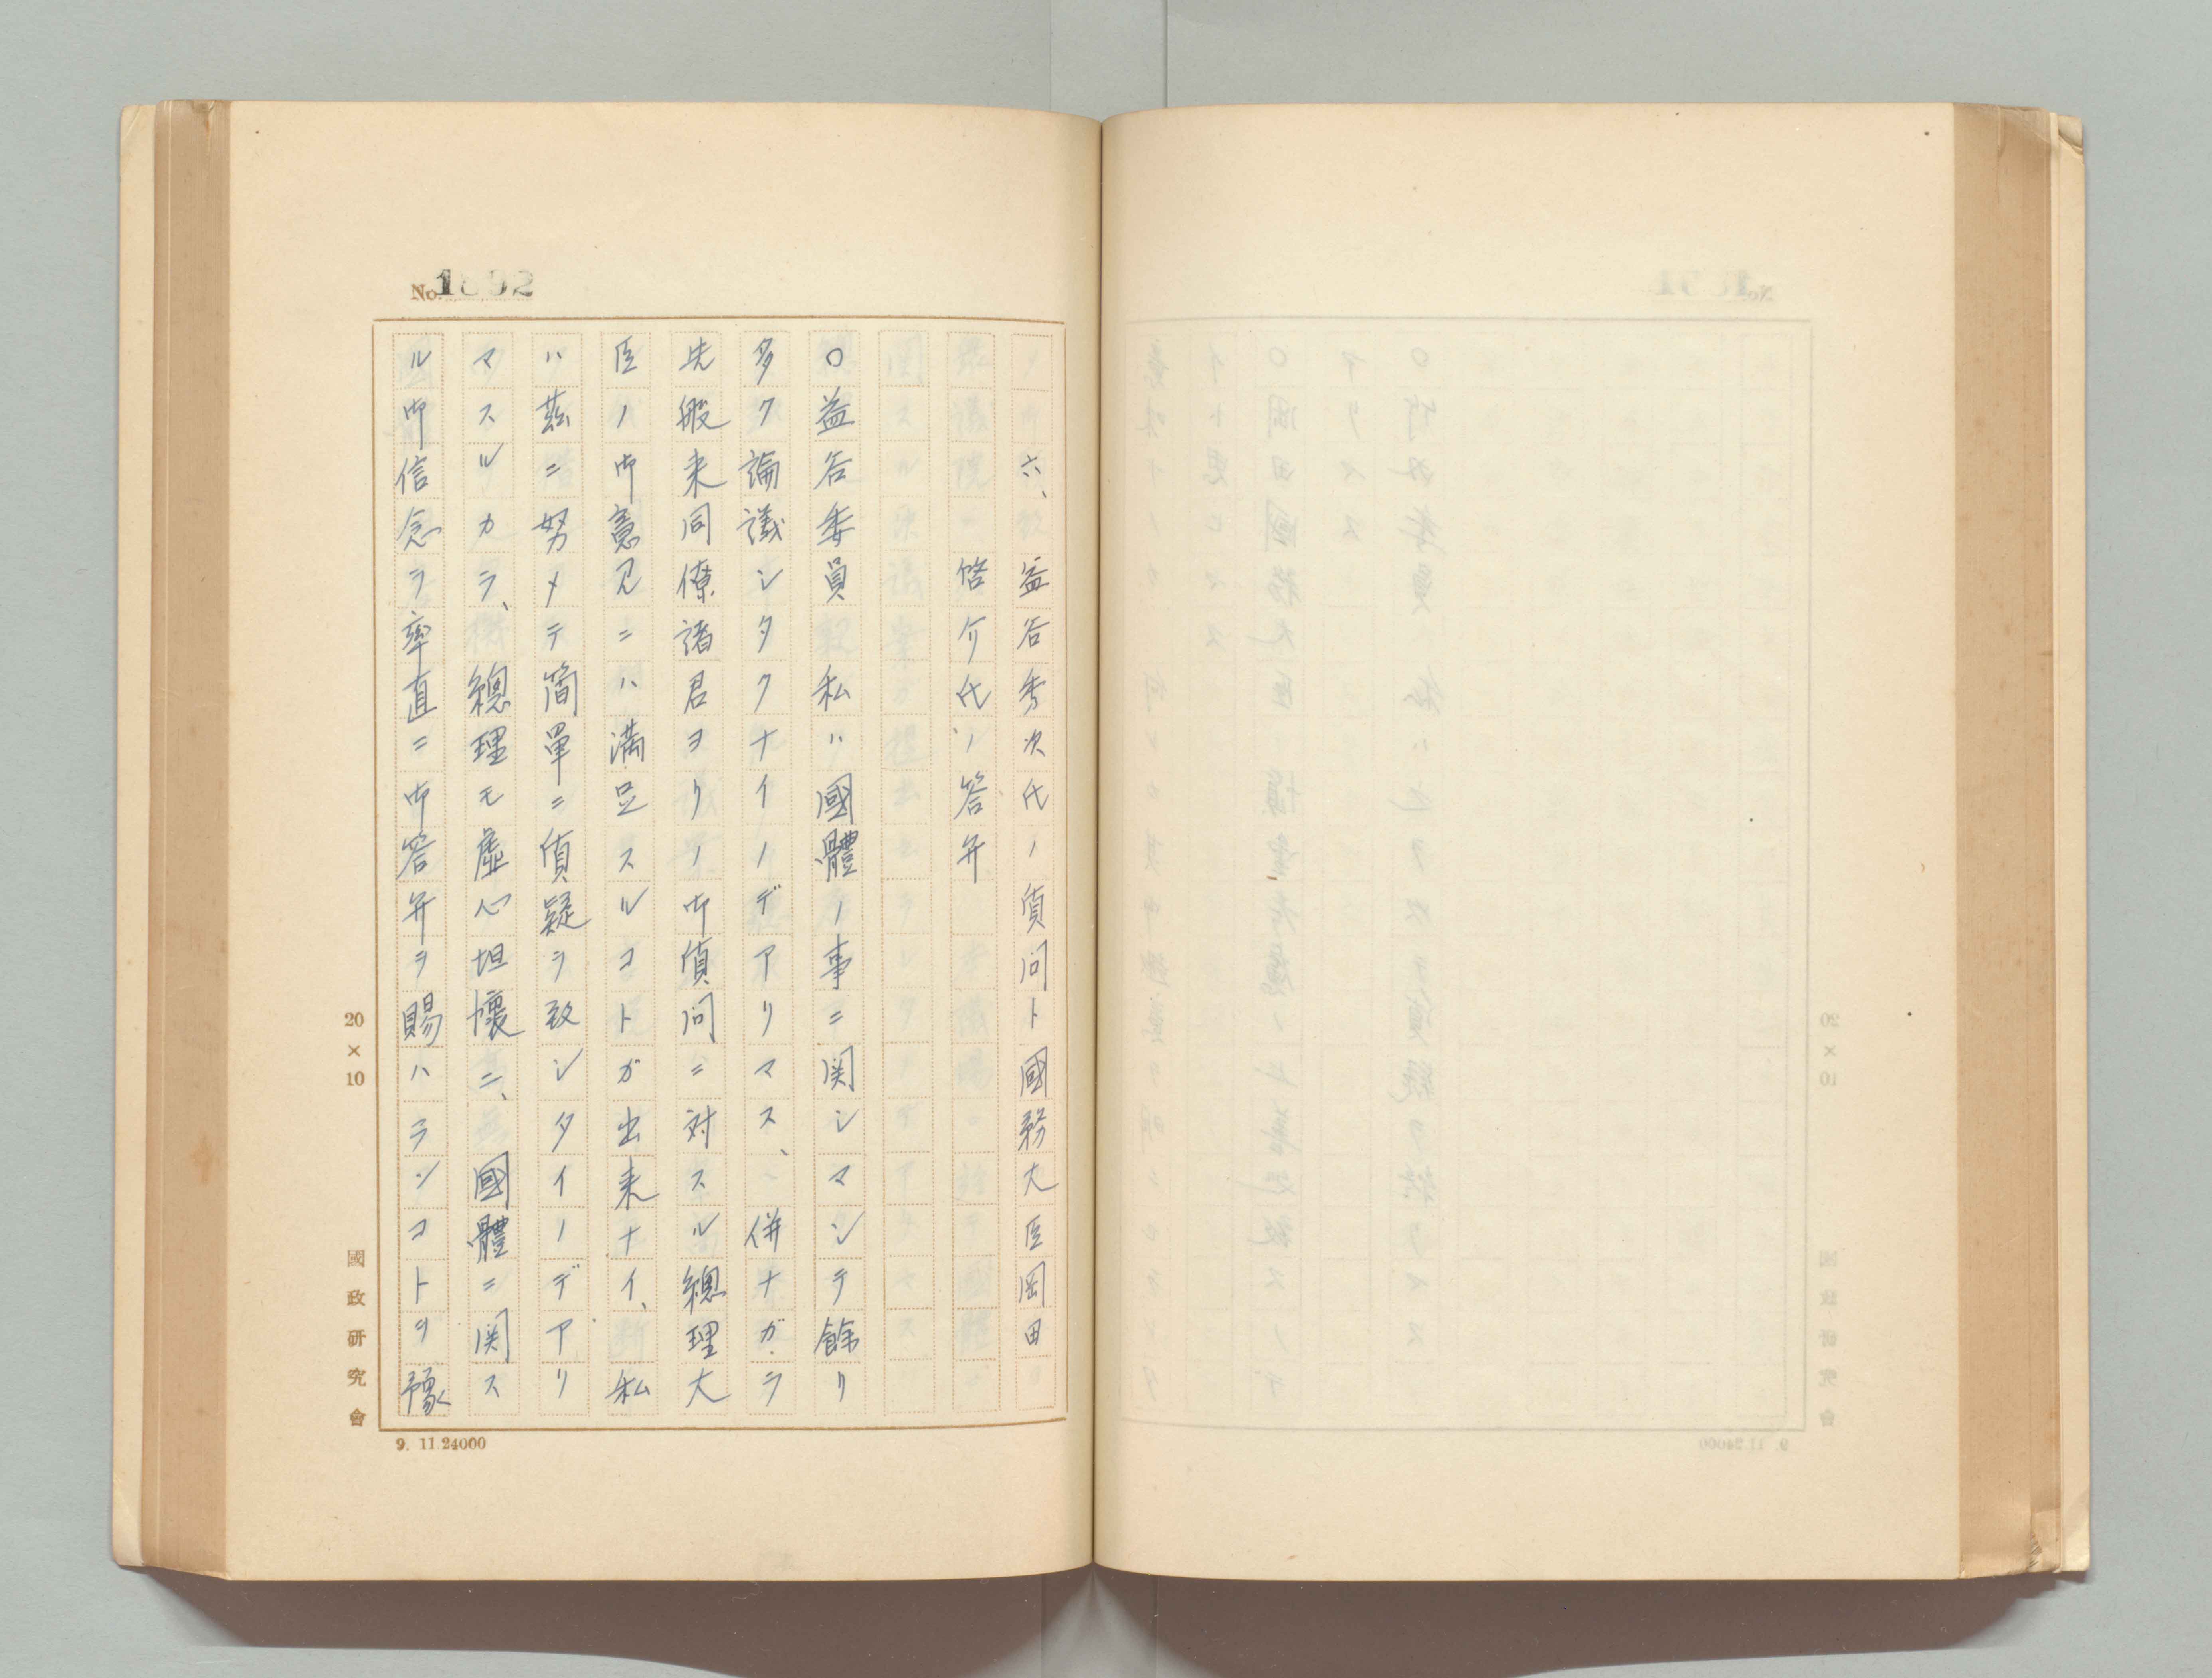 No. 1892
六、益谷秀次氏ノ質問ト國務大臣岡田
啓介氏ノ答弁
〇益谷委員 私ハ國體ノ事ニ関シマシテ餘リ
多ク論議シタクナイノデアリマス、併ナガラ
先般来同僚諸君ヨリノ御質問ニ対スル總理大
臣ノ御意見ニハ満足スルコトガ出来ナイ、私
ハ茲ニ努メテ簡單ニ質疑ヲ致シタイノデアリ
マスルカラ、總理モ虚心坦懐ニ、國體ニ関ス
ル御信念ヲ率直ニ御答弁ヲ賜ハランコトヲ豫
20×10
國政研究會
9. 11.24000